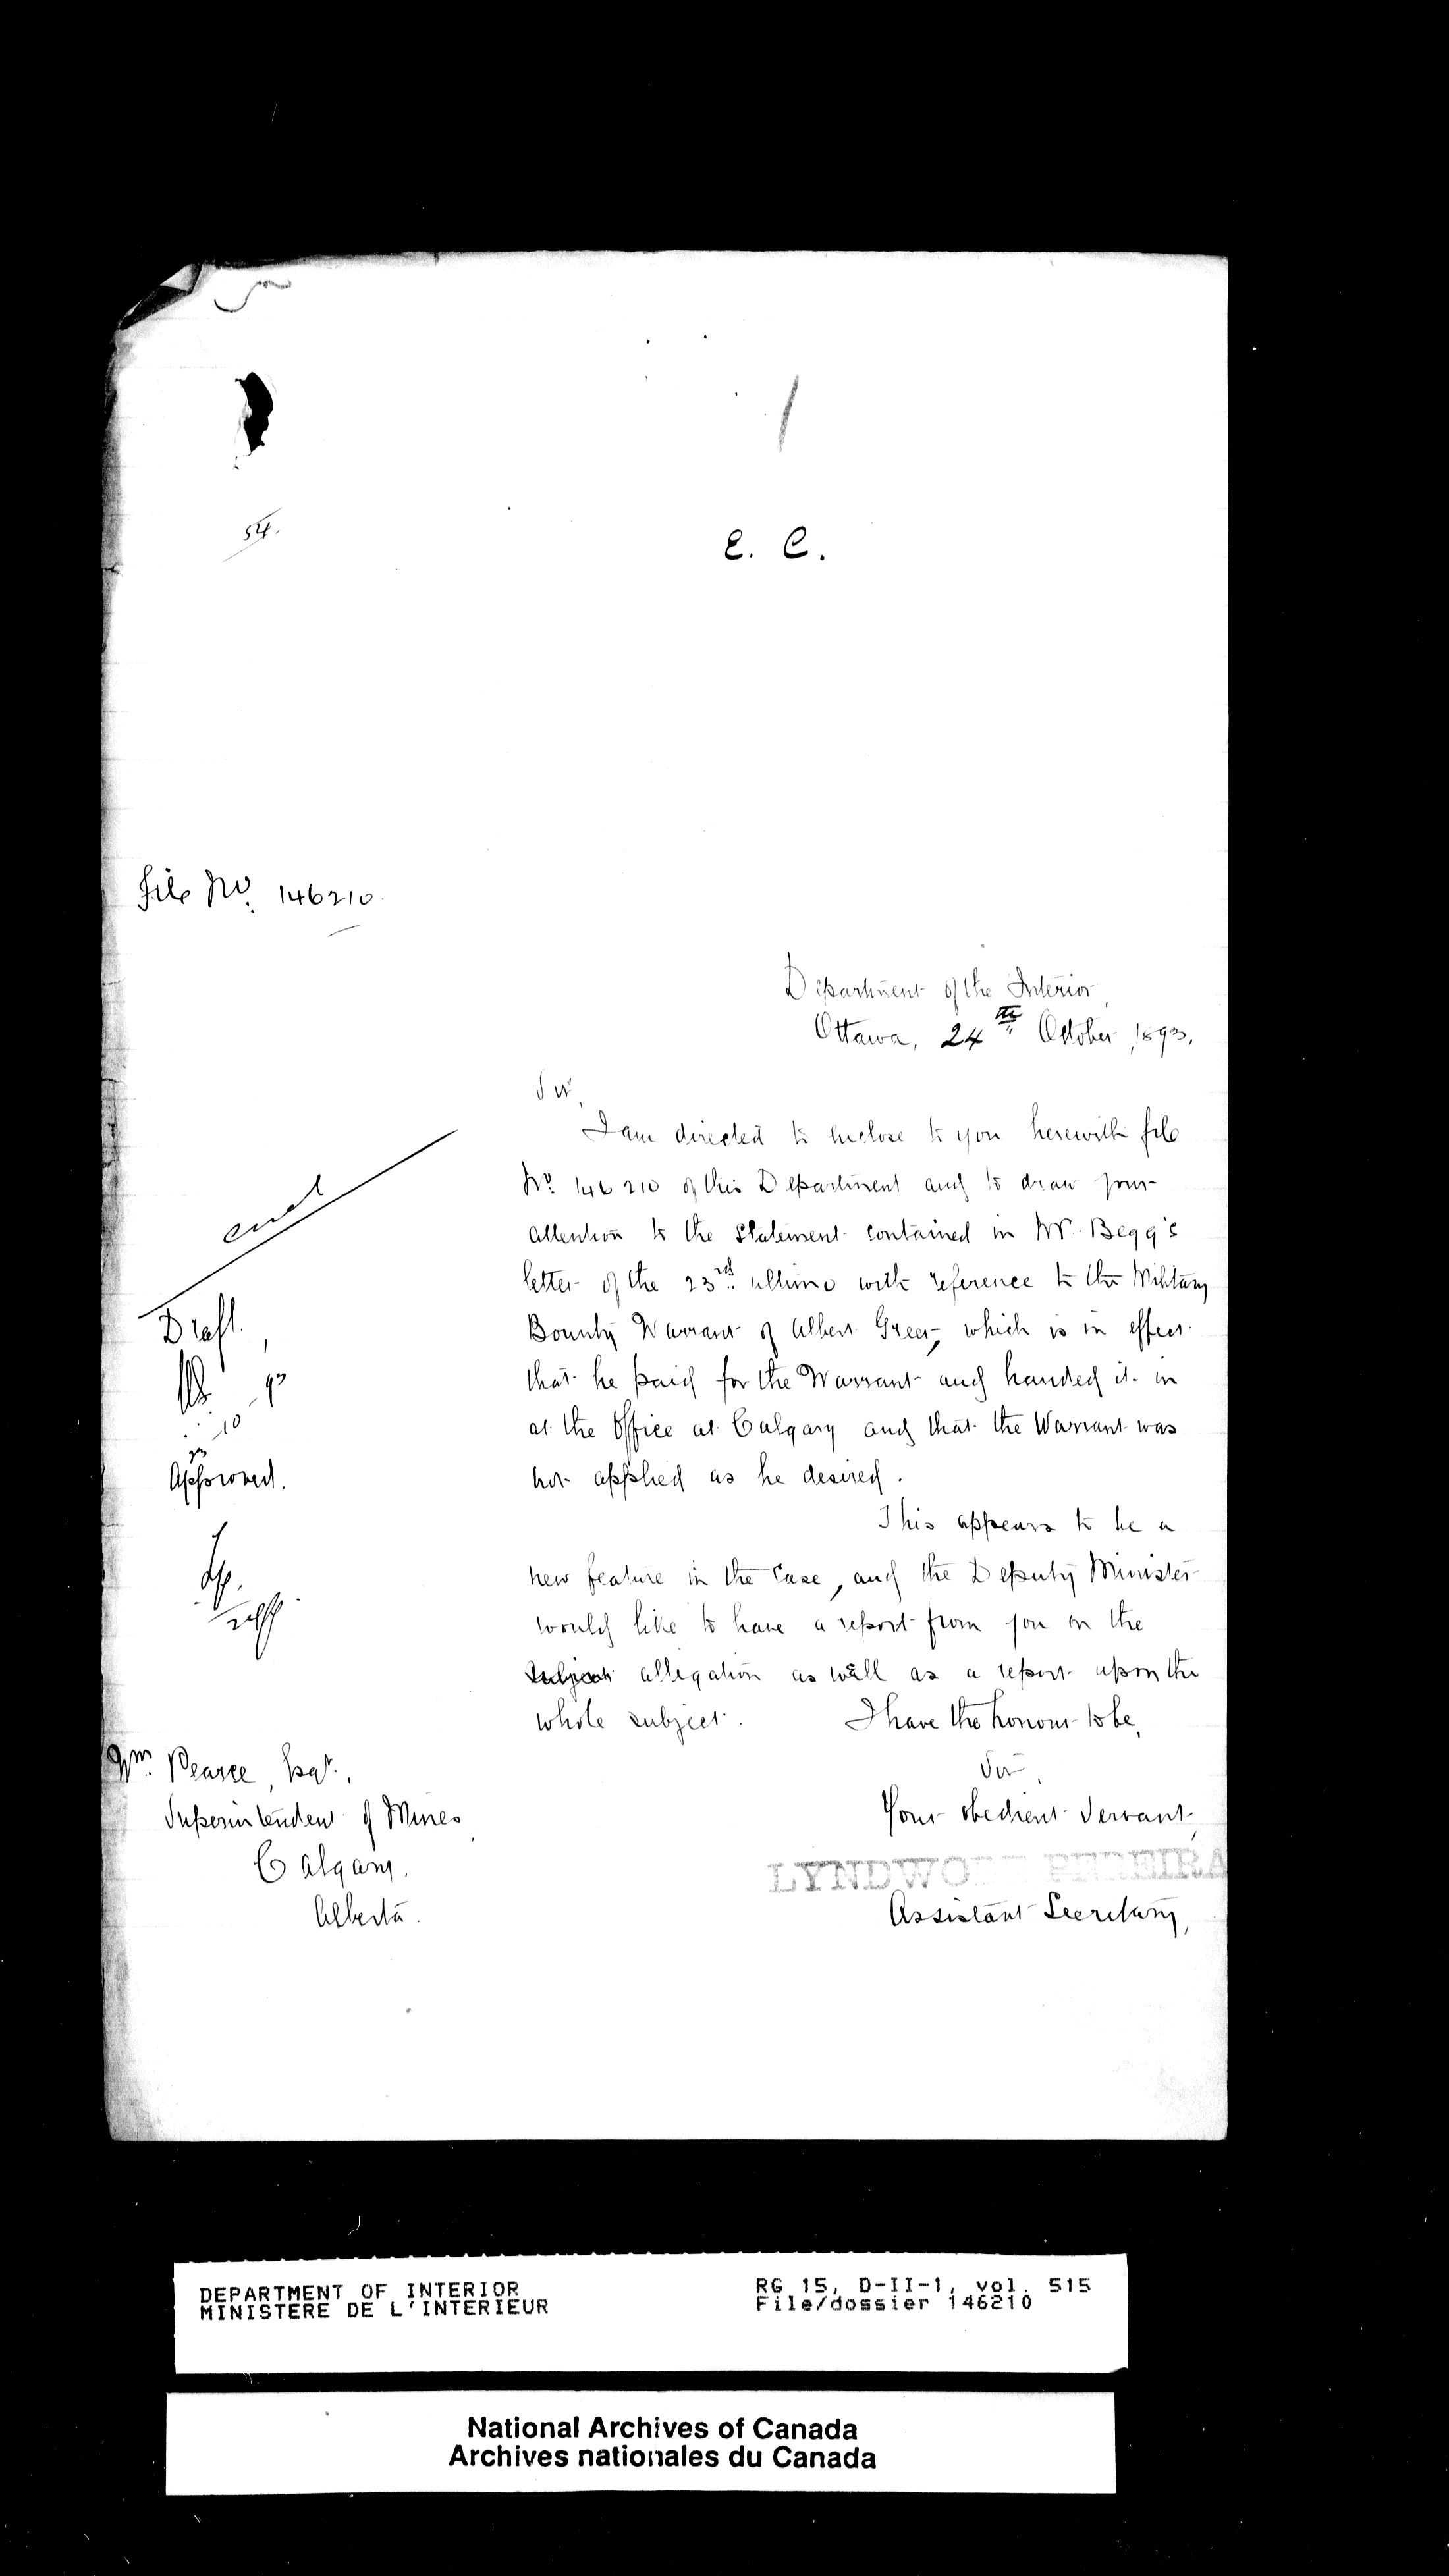 54.
E. C.
File No. 146210.
Department of the Interior,
Ottawa, 24th October, 1893.
Sir,
I am directed to inclose to you herewith file
No. 146210 of this Department and to draw your
attention to the statement contained in Mr. Begg's
letter of the 23rd ultimo with reference to the Military
Bounty Warrant of Albert Greer, which is in effect
that he paid for the Warrant and handed it in
at the Office at Calgary and that the Warrant was
not applied as he desired.
This appears to be a
new feature in the case, and the Deputy Minister
would like to have a report from you on the
subject allegation as well as a report upon the
whole subject. I have the honour to be,
Sir,
Your obedient servant,
LYNDWODE PEREIRA
Assistant Secretary,
encl
Draft.
10 93
Approved.
Wm. Pearce, Esqr.,
Superintendent of Mines,
Calgary,
Alberta.
DEPARTMENT OF INTERIOR
MINISTERE DE L'INTERIEUR
RG 15, D-II-1, vol. 515
File/dossier 146210
National Archives of Canada
Archives nationales du Canada